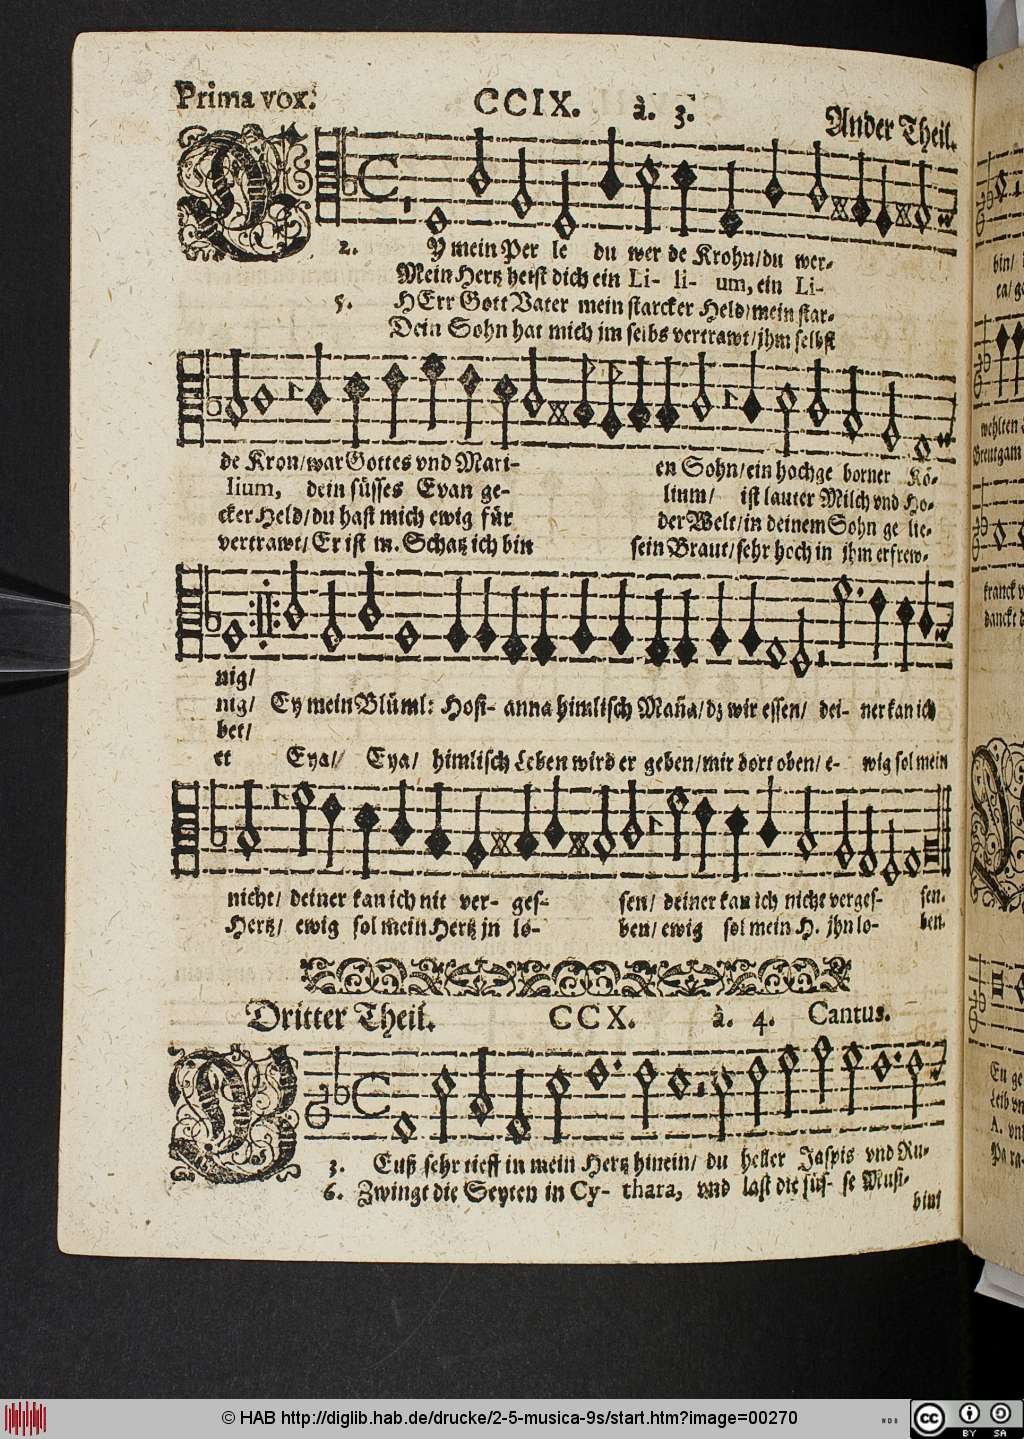 Prima vox. CCIX. à. 3. Ander Theil.
2. Y mein Per le du wer de Krohn/du wer-
Mein Hertz heist dich ein Li- li- um, ein Li-
5. HErr Gott Vater mein starcker Held/mein star-
Dein Sohn hat mich im selbs vertrawt/jhm selbst
de Kron/war Gottes vnd Mari- en Sohn/ein hochge borner Kö-
lium, dein süsses Evan ge- lium/ ist lauter Milch vnd Ho-
cker Held/du hast mich ewig für der Welt/in deinem Sohn ge lie-
vertrawt/Er ist m. Schatz ich bin sein Braut/sehr hoch in jhm erfrew-
nig/
nig/ Ey mein Blüml: Hosi- anna himlisch Mañа/dz wir essen/ dei- ner kan ich
bet/
et Eya/ Eya/ himlisch Leben wird er geben/mir dort oben/ e- wig sol mein
nicht/ deiner kan ich nit ver- ges- sen/ deiner kan ich nicht verges- sen.
Hertz/ ewig sol mein Hertz jn lo- ben/ ewig sol mein H. jhn lo- ben.
Dritter Theil. CCX. à. 4. Cantus.
3. Euß sehr tieff in mein Hertz hinein/ du heller Jaspis vnd Ru-
6. Zwingt die Seyten in Cy- thara, vnd last die süs- se Musi-
bin/
wehlten
Breutgam
kranck
dancke
Eu ge
Leib vn
A. vn
Pa ra-
© HAB http://diglib.hab.de/drucke/2-5-musica-9s/start.htm?image=00270
cc BY SA